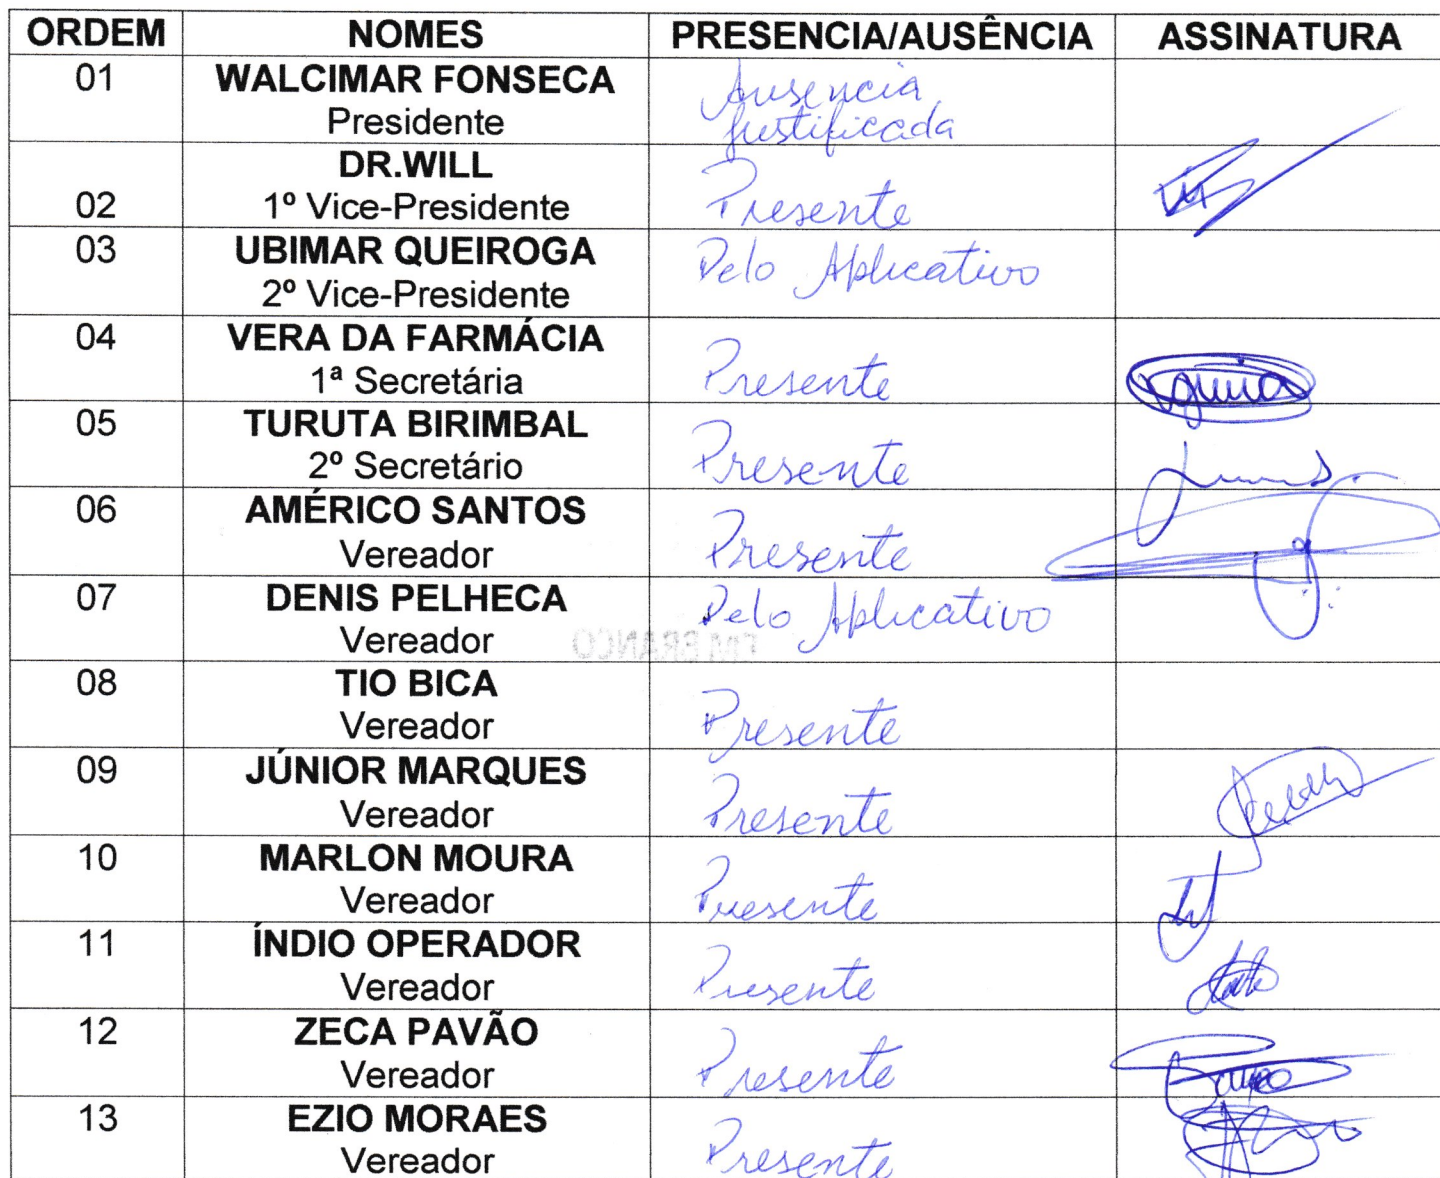 ORDEM NOMES PRESENCIA/AUSÊNCIA ASSINATURA
01 WALCIMAR FONSECA Ausencia
Presidente Justificada
DR.WILL
02 1º Vice-Presidente Presente
03 UBIMAR QUEIROGA Pelo Aplicativo
2º Vice-Presidente
04 VERA DA FARMÁCIA
1ª Secretária Presente
05 TURUTA BIRIMBAL
2º Secretário Presente
06 AMÉRICO SANTOS
Vereador Presente
07 DENIS PELHECA Pelo Aplicativo
Vereador EM BRANCO
08 TIO BICA
Vereador Presente
09 JÚNIOR MARQUES
Vereador Presente
10 MARLON MOURA
Vereador Presente
11 ÍNDIO OPERADOR
Vereador Presente
12 ZECA PAVÃO
Vereador Presente
13 EZIO MORAES
Vereador Presente